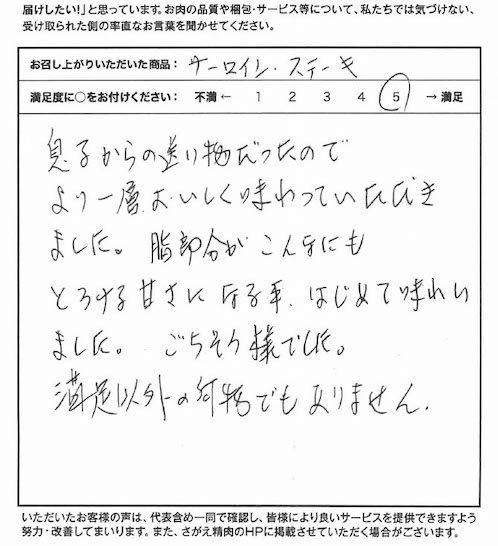 届けしたい!」と思っています。お肉の品質や梱包・サービス等について、私たちでは気づけない、
受け取られた側の率直なお言葉を聞かせてください。
お召し上がりいただいた商品： サーロイン・ステーキ
満足度に○をお付けください： 不満 ← 1 2 3 4 5 → 満足
息子からの送り物だったので
より一層おいしく味わっていただき
ました。脂部分がこんなにも
とろける甘さになる事、はじめて味わい
ました。ごちそう様でした。
満足以外の何物でもありません.
いただいたお客様の声は、代表含め一同で確認し、皆様により良いサービスを提供できますよう
努力・改善してまいります。また、さがえ精肉のHPに掲載させていただく場合がございます。